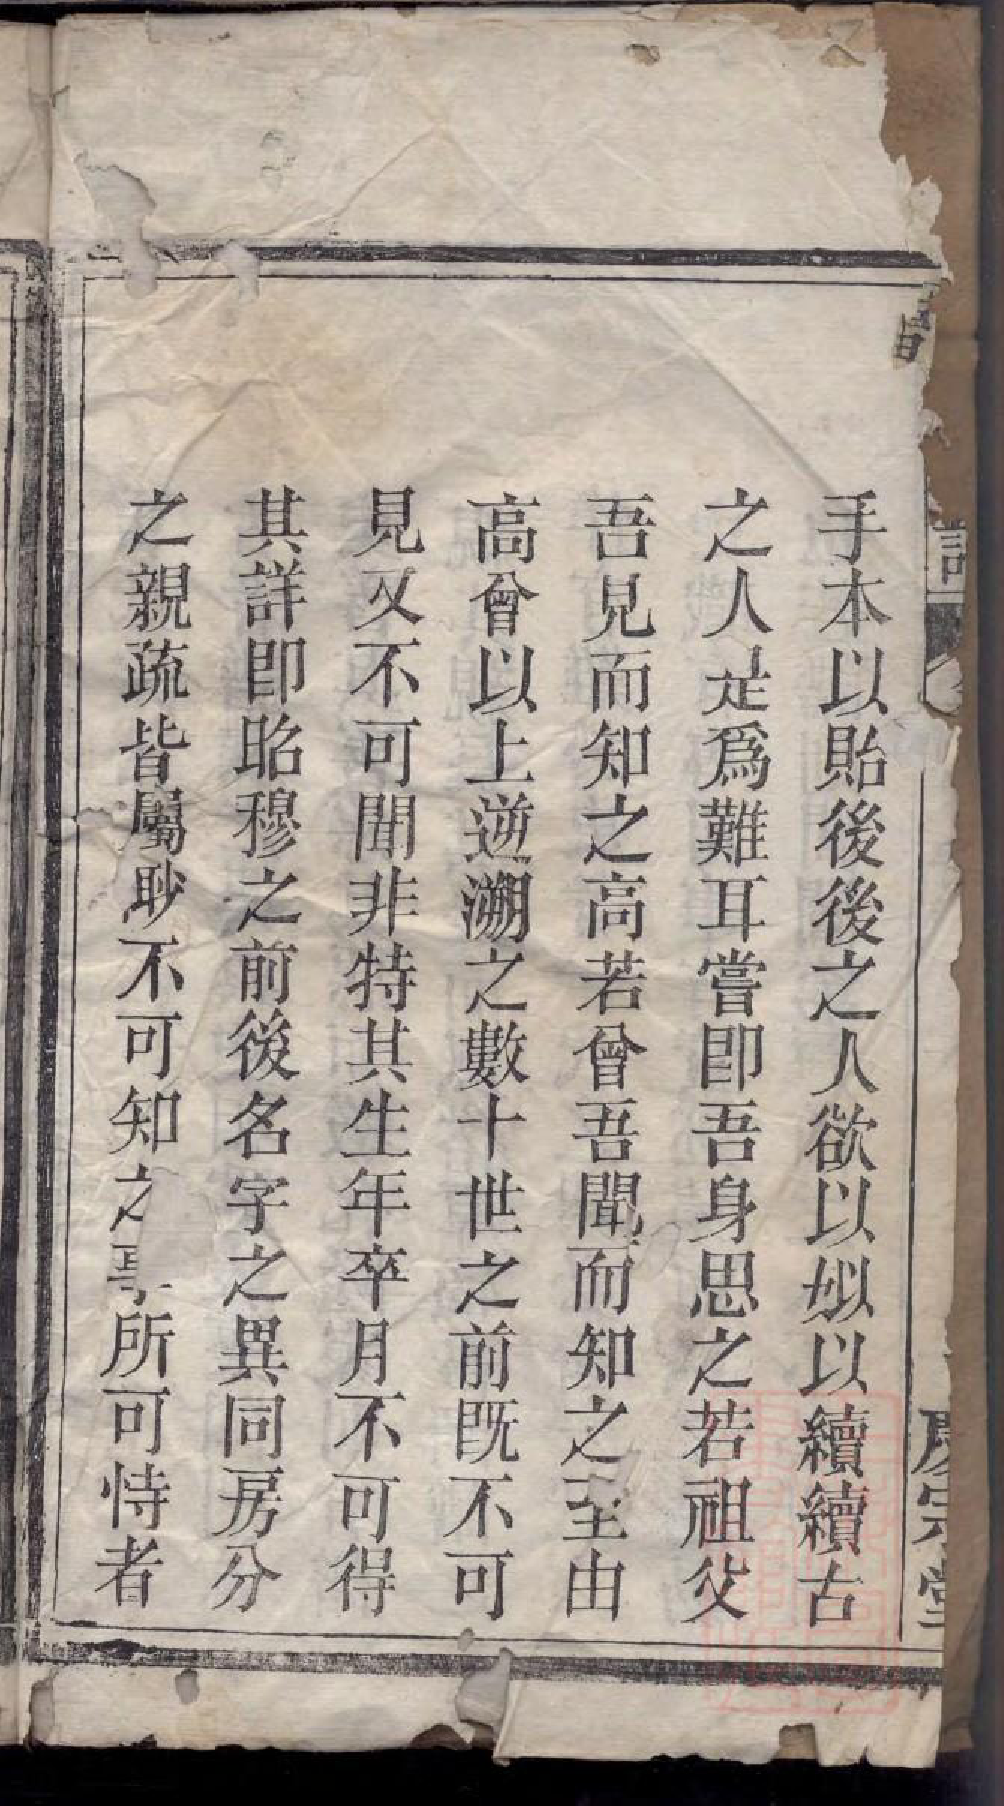 手本以貽後後之人欲以姒以續續古
之人是爲難耳嘗卽吾身思之若祖父
吾見而知之高若曾吾聞而知之至由
高曾以上逆溯之數十世之前既不可
見又不可聞非特其生年卒月不可得
其詳卽昭穆之前後名字之異同房分
之親疏皆屬眇不可知之事所可恃者
慶宗堂